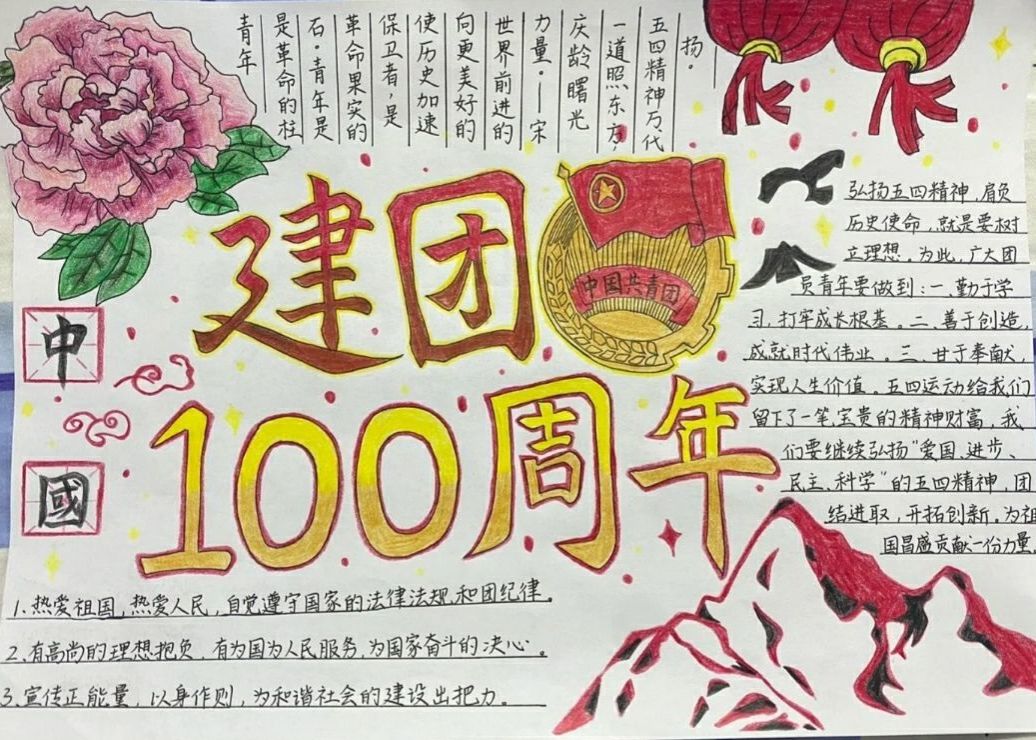 青年
是革命的柱
石。青年是
革命果实的
保卫者,是
使历史加速
向更美好的
世界前进的
力量。——宋
庆龄 曙光
一道照东方,
五四精神万代
扬。
建团
中国共青团
100周年
中
國
弘扬五四精神,肩负
历史使命,就是要树
立理想,为此,广大团
员青年要做到:一、勤于学
习,打牢成长根基。二、善于创造,
成就时代伟业。三、甘于奉献,
实现人生价值。五四运动给我们
留下了一笔宝贵的精神财富,我
们要继续弘扬“爱国、进步、
民主、科学”的五四精神,团
结进取,开拓创新。为祖
国昌盛贡献一份力量。
1.热爱祖国,热爱人民,自觉遵守国家的法律法规和团纪律。
2.有高尚的理想抱负,有为国为人民服务,为国家奋斗的决心。
3.宣传正能量,以身作则,为和谐社会的建设出把力。